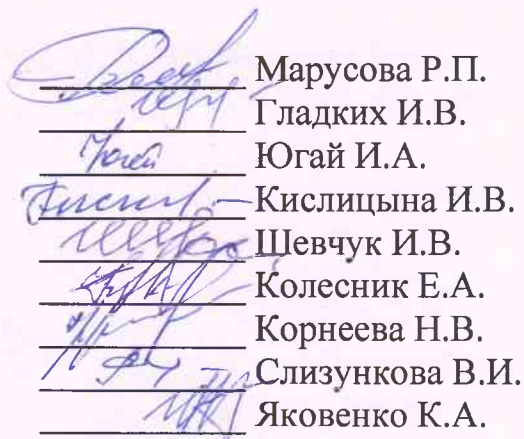 Марусова Р.П.
Гладких И.В.
Югай И.А.
Кислицына И.В.
Шевчук И.В.
Колесник Е.А.
Корнеева Н.В.
Слизункова В.И.
Яковенко К.А.